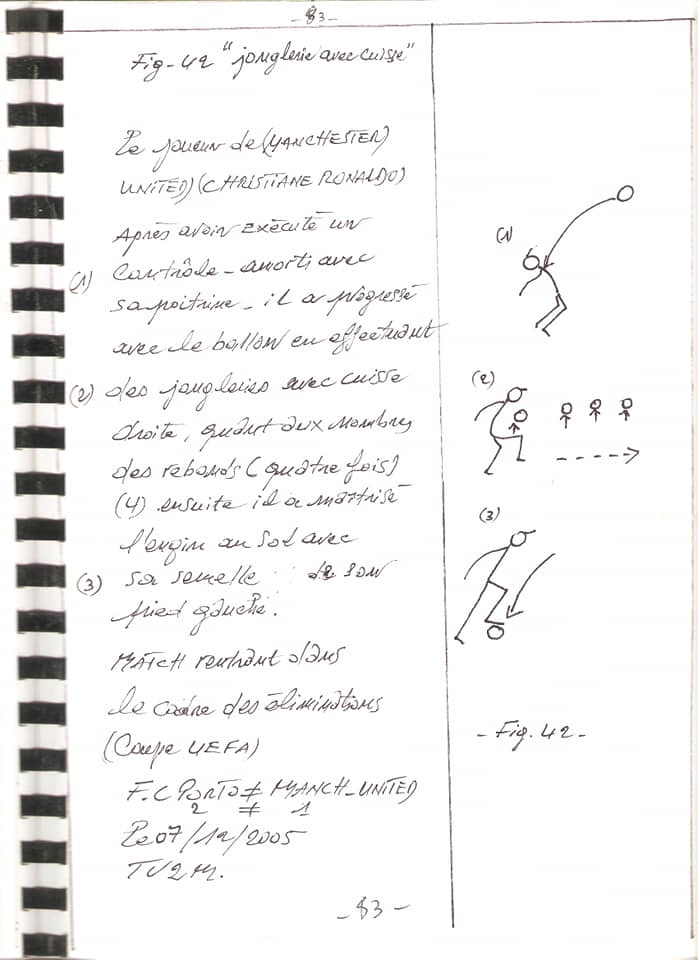 - 83 -
Fig-42 "jonglerie avec cuisse"
Le joueur de (MANCHESTER)
UNITED) (CHRISTIANE RONALDO)
Après avoir exécuté un
(1) Contrôle-amorti avec
sa poitrine - il a progressé
avec le ballon en effectuant
(2) des jongleries avec cuisse
droite, quant aux nombres
des rebonds (quatre fois)
(4) ensuite il a maîtrisé
l'engin au sol avec
(3) sa semelle de son
pied gauche.
MATCH rentrant dans
le cadre des éliminations
(Coupe UEFA)
F.C PORTO ≠ MANCH-UNITED
2 ≠ 1
Le 07/12/2005
TV2M.
- 83 -
(1)
(2)
(3)
- Fig. 42 -